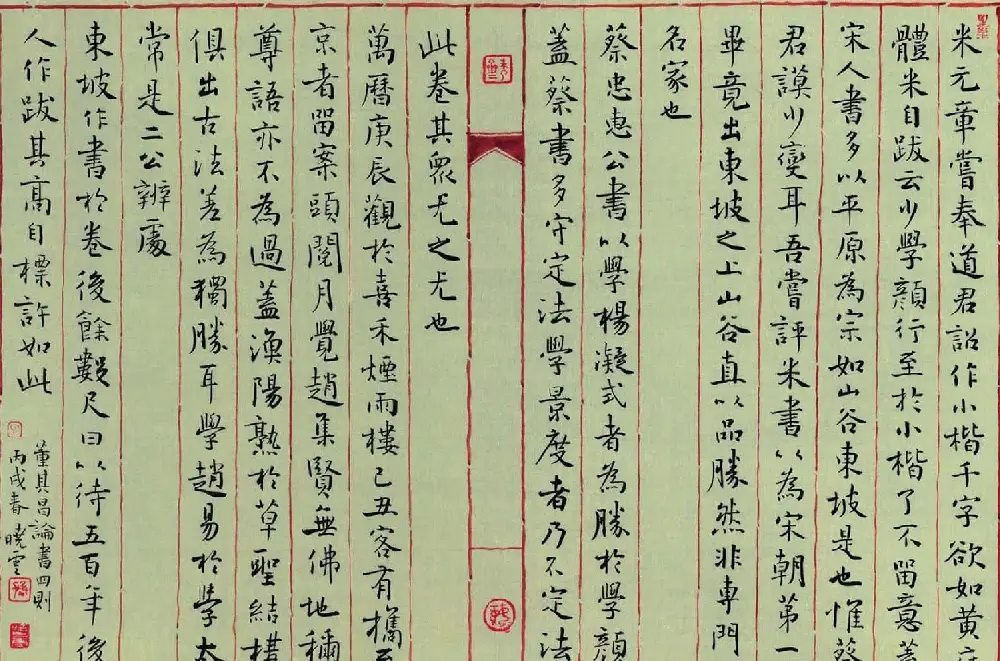 米元章嘗奉道君詔作小楷千字欲如黃庭
體米自跋云少學顏行至於小楷了不留意蓋
宋人書多以平原為宗如山谷東坡是也惟蔡
君謨少變耳吾嘗評米書以為宋朝第一
畢竟出東坡之上山谷直以品勝然非專門
名家也
蔡忠惠公書以學楊凝式者為勝於學顏
蓋蔡書多守定法學景度者乃不定法
此卷其眾尤之尤也
萬曆庚辰觀於喜禾煙雨樓己丑客有攜至
京者留案頭閱月覺趙集賢無佛地稱
尊語亦不為過蓋漁陽熟於草聖結構
俱出古法差為獨勝耳學趙易於學太
常是二公辨處
東坡作書於卷後餘數尺曰以待五百年後
人作跋其高自標許如此
董其昌論書四則
丙戌春曉雲